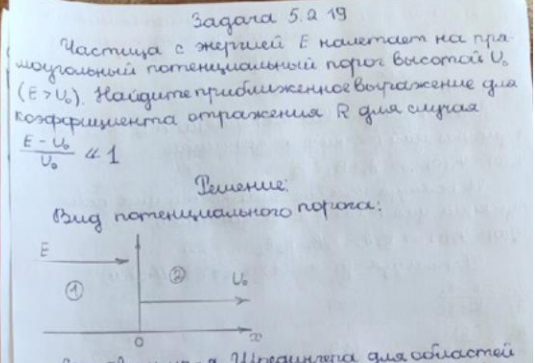 Задача 5.2.19
Частица с энергией E налетает на пря-
моугольный потенциальный порог высотой U₀
(E > U₀). Найдите приближенное выражение для
коэффициента отражения R для случая
(E - U₀)/U₀ ≪ 1
Решение:
Вид потенциального порога:
E
① ② U₀
0 x
Шредингера для областей